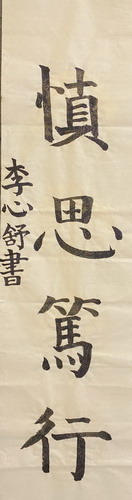 慎思篤行
李心舒書